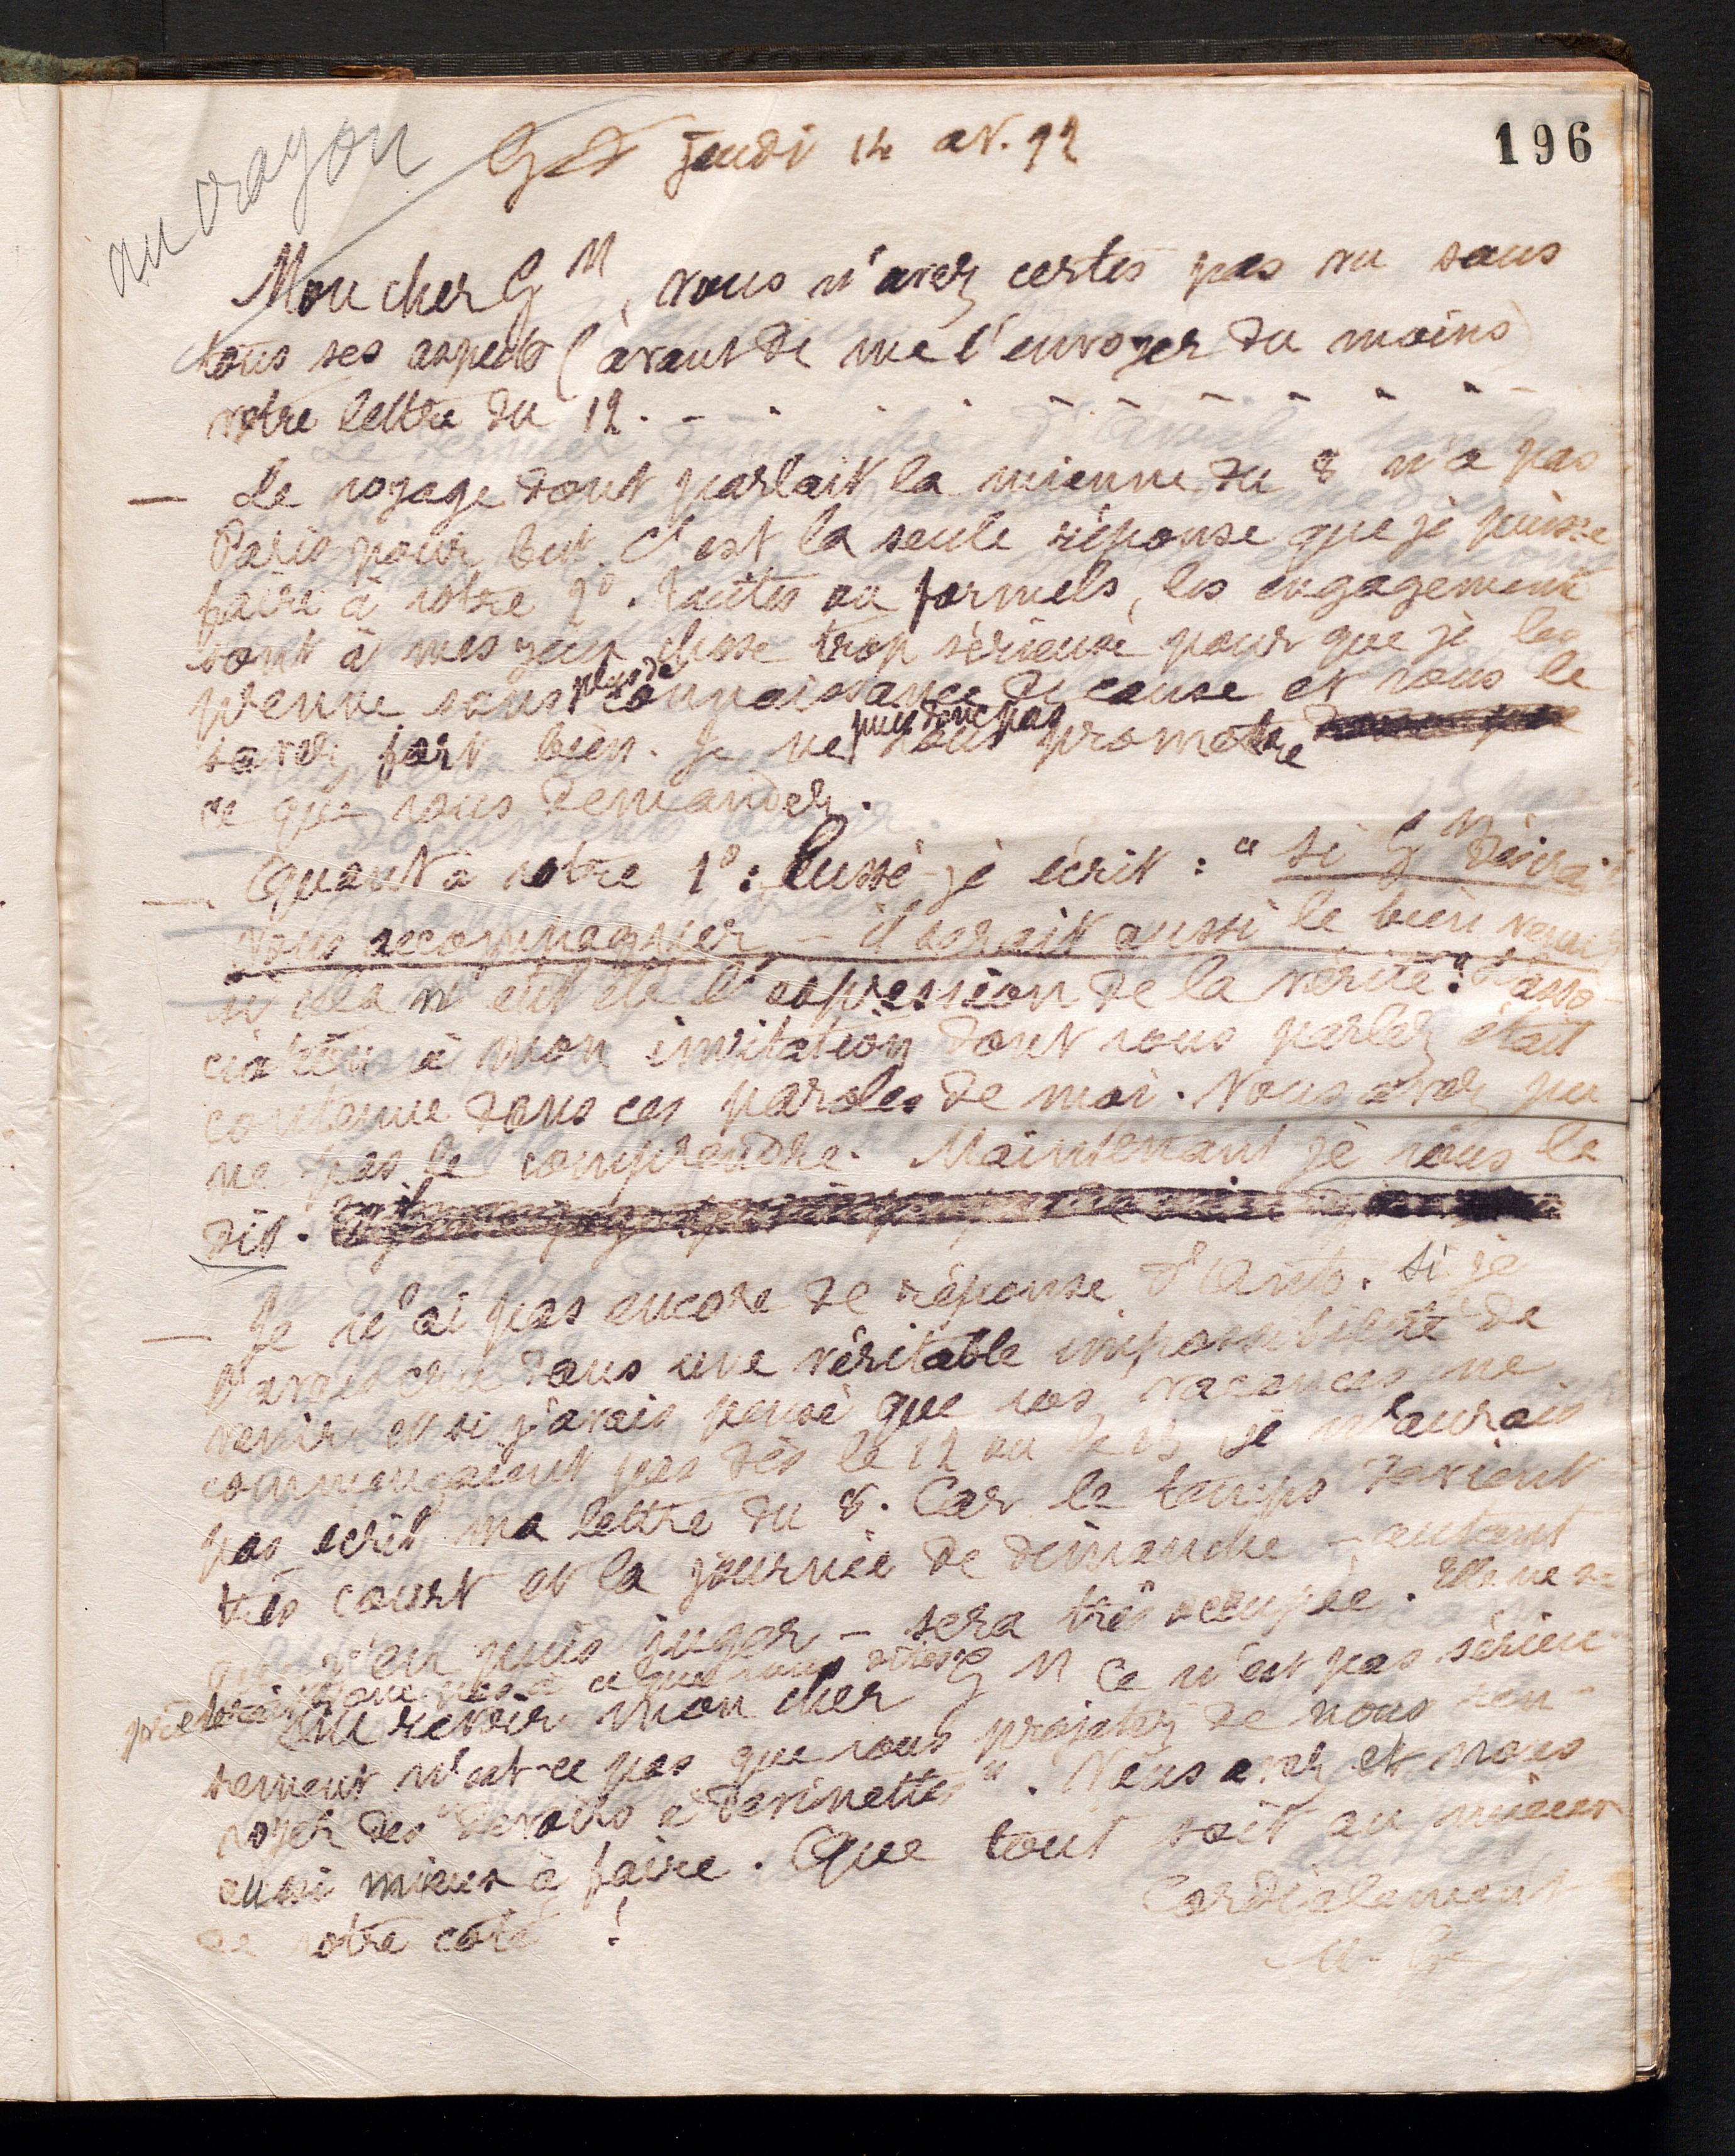 196
au crayon
Gse Jeudi 14 av. 92
Mon cher G M, vous n'avez certes pas vu sous
tous ses aspects (avant de me l'envoyer du moins)
votre lettre du 12. - . . . - - - - - -
— Le voyage dont parlait la mienne du 8 n'a pas
Paris pour but. C'est la seule réponse que je puisse
faire à votre 2°. Tacites ou formels, les engagements
sont à mes yeux chose trop sérieuse pour que je les
prenne sans plus de connaissance de cause et vous le
savez fort bien. Je ne puis donc pas vous promettre
ce que vous demandez.
— Quant à votre 1° : Eussé-je écrit : "si G M désirait
vous accompagner – il serait aussi le bien venu"
si cela n'eut été l'expression de la vérité? L'asso-
ciation à mon invitation dont vous parlez était
contenue dans ces paroles de moi. Vous avez pu
ne pas le comprendre. Maintenant je vous le
dis.
— Je n'ai pas encore de réponse d'Anto. Si je
l'avais cru dans une véritable impossibilité de
venir et si j'avais pensé que vos vacances ne
commençaient pas dès le 12 ou le 13 je n'aurais
pas écrit ma lettre du 8. Car le temps devient
très court et la journée de dimanche – autant
que j'en puis juger – sera très occupée. Elle ne se
donc pas à ce que vous dites
Au revoir mon cher G M Ce n'est pas sérieu-
sement n'est-ce pas que vous projetez de nous ren-
voyer des "devoirs à devinettes". Vous avez et nous
aussi mieux à faire. Que tout soit au mieux
de votre coté !
Cordialement
M. G